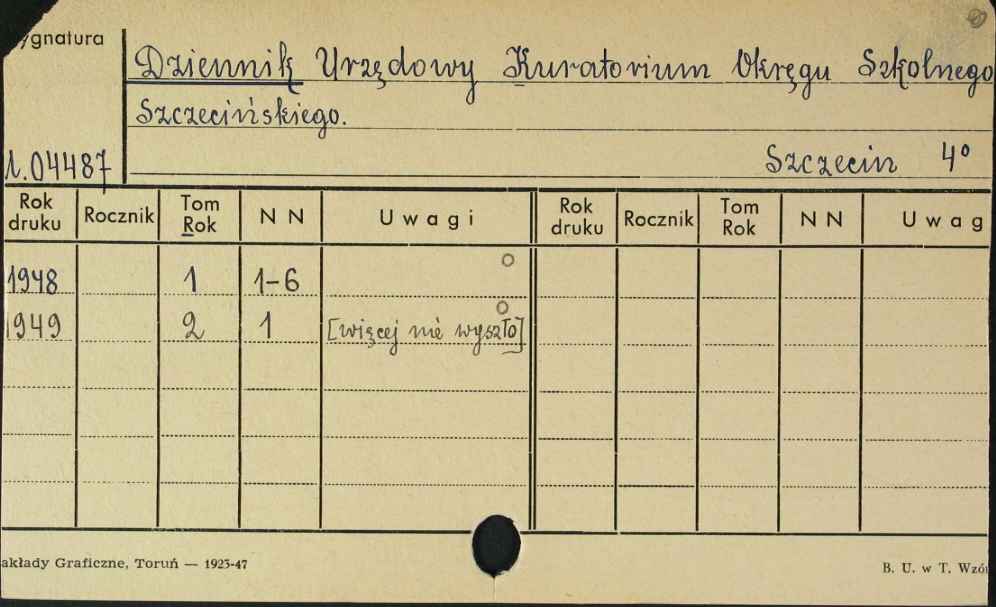 ygnatura
Dziennik Urzędowy Kuratorium Okręgu Szkolnego
Szczecińskiego.
1.04487 Szczecin 4°
Rok druku Rocznik Tom Rok N N Uwagi Rok druku Rocznik Tom Rok N N Uwag
1948 1 1-6
1949 2 1 [więcej nie wyszło]
akłady Graficzne, Toruń — 1923-47 B. U. w T. Wzó